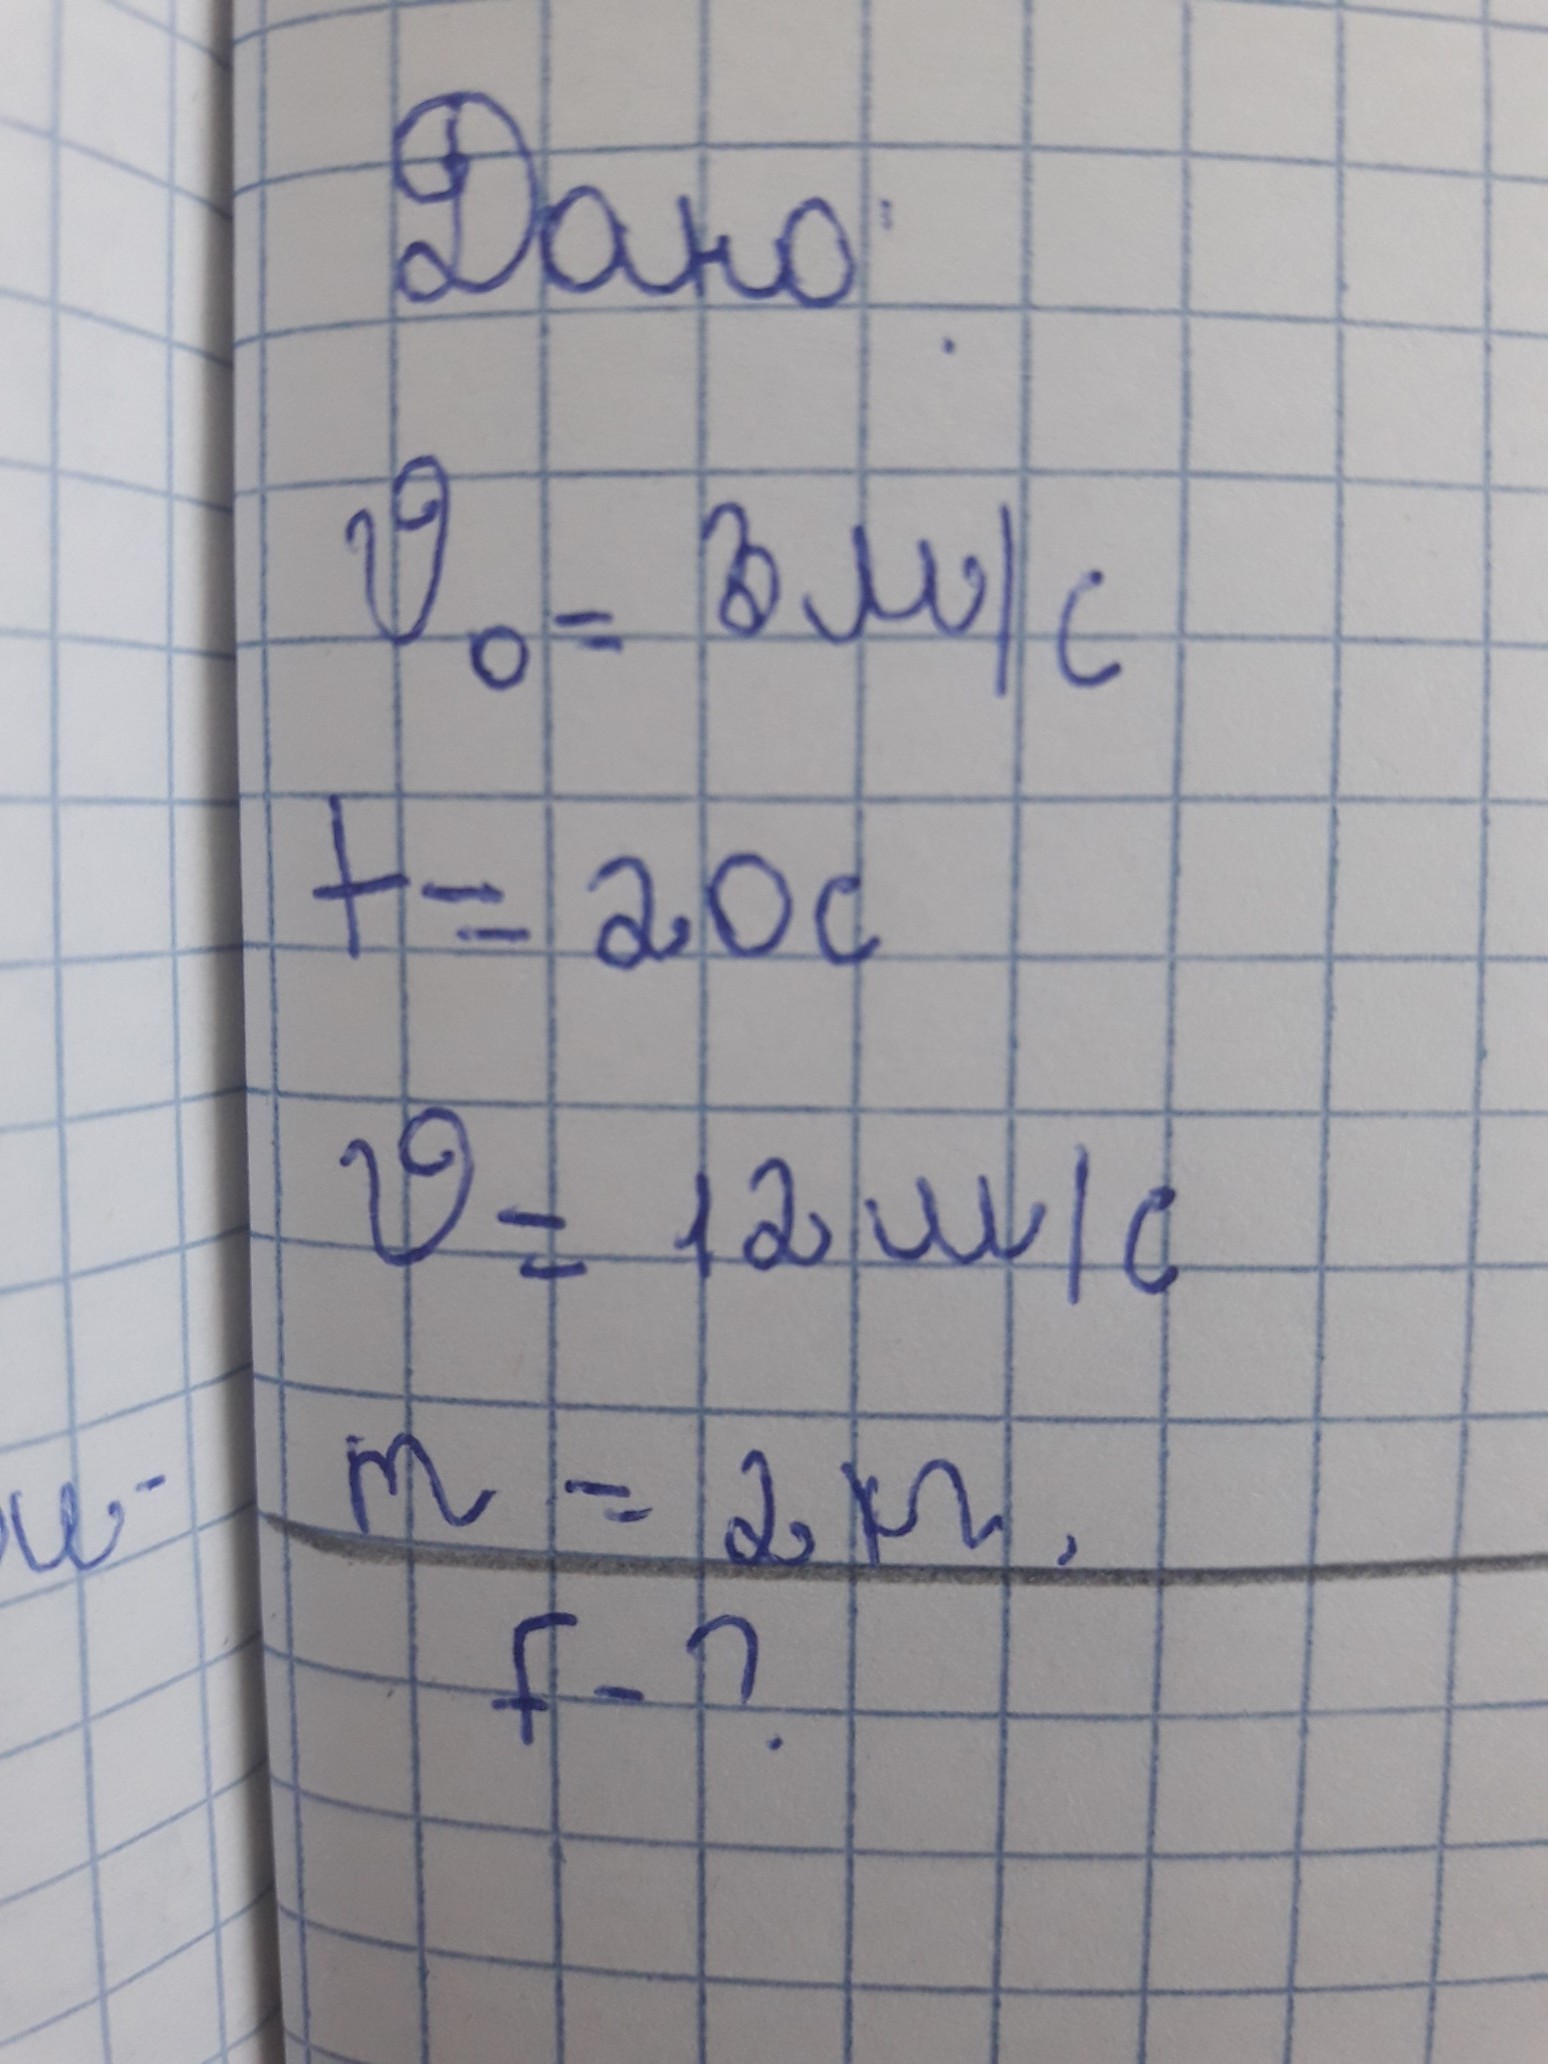 Дано:
ϑ₀ = 3 м/с
t = 20с
ϑ = 12 м/с
m = 2 кг.
F - ?